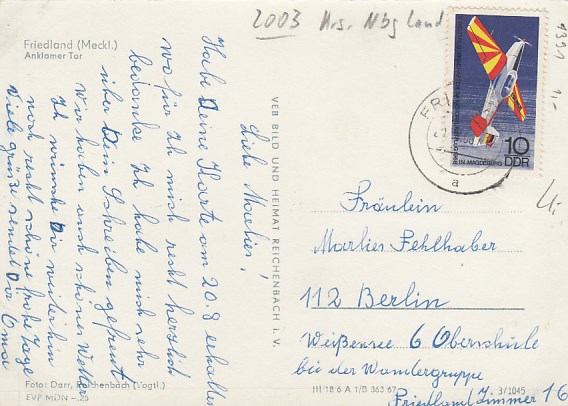 2003 Krs. Nbg Land
1391
1,-
Friedland (Meckl.)
Anklamer Tor
Liebe Marlies!
Habe Deine Karte am 20.8 erhalten
wo für ich mich recht herzlich
bedanke. Ich habe mich sehr
über Dein Schreiben gefreut
Wir haben auch schönes Wetter
Ich wünsche Dir weiterhin
noch recht schöne frohe Tage
Viele Grüße sendet Dir Oma
VEB BILD UND HEIMAT REICHENBACH i. V.
10
DDR
MAGDEBURG
a
Fräulein
Marlies Fehlhaber
112 Berlin
Weißensee 6 Oberschule
bei der Wandergruppe
Friedland Zimmer 16
Foto: Darr, Reichenbach (Vogtl.)
EVP MDN -,25
III 18 6 A 1/B 363 67
3/1045